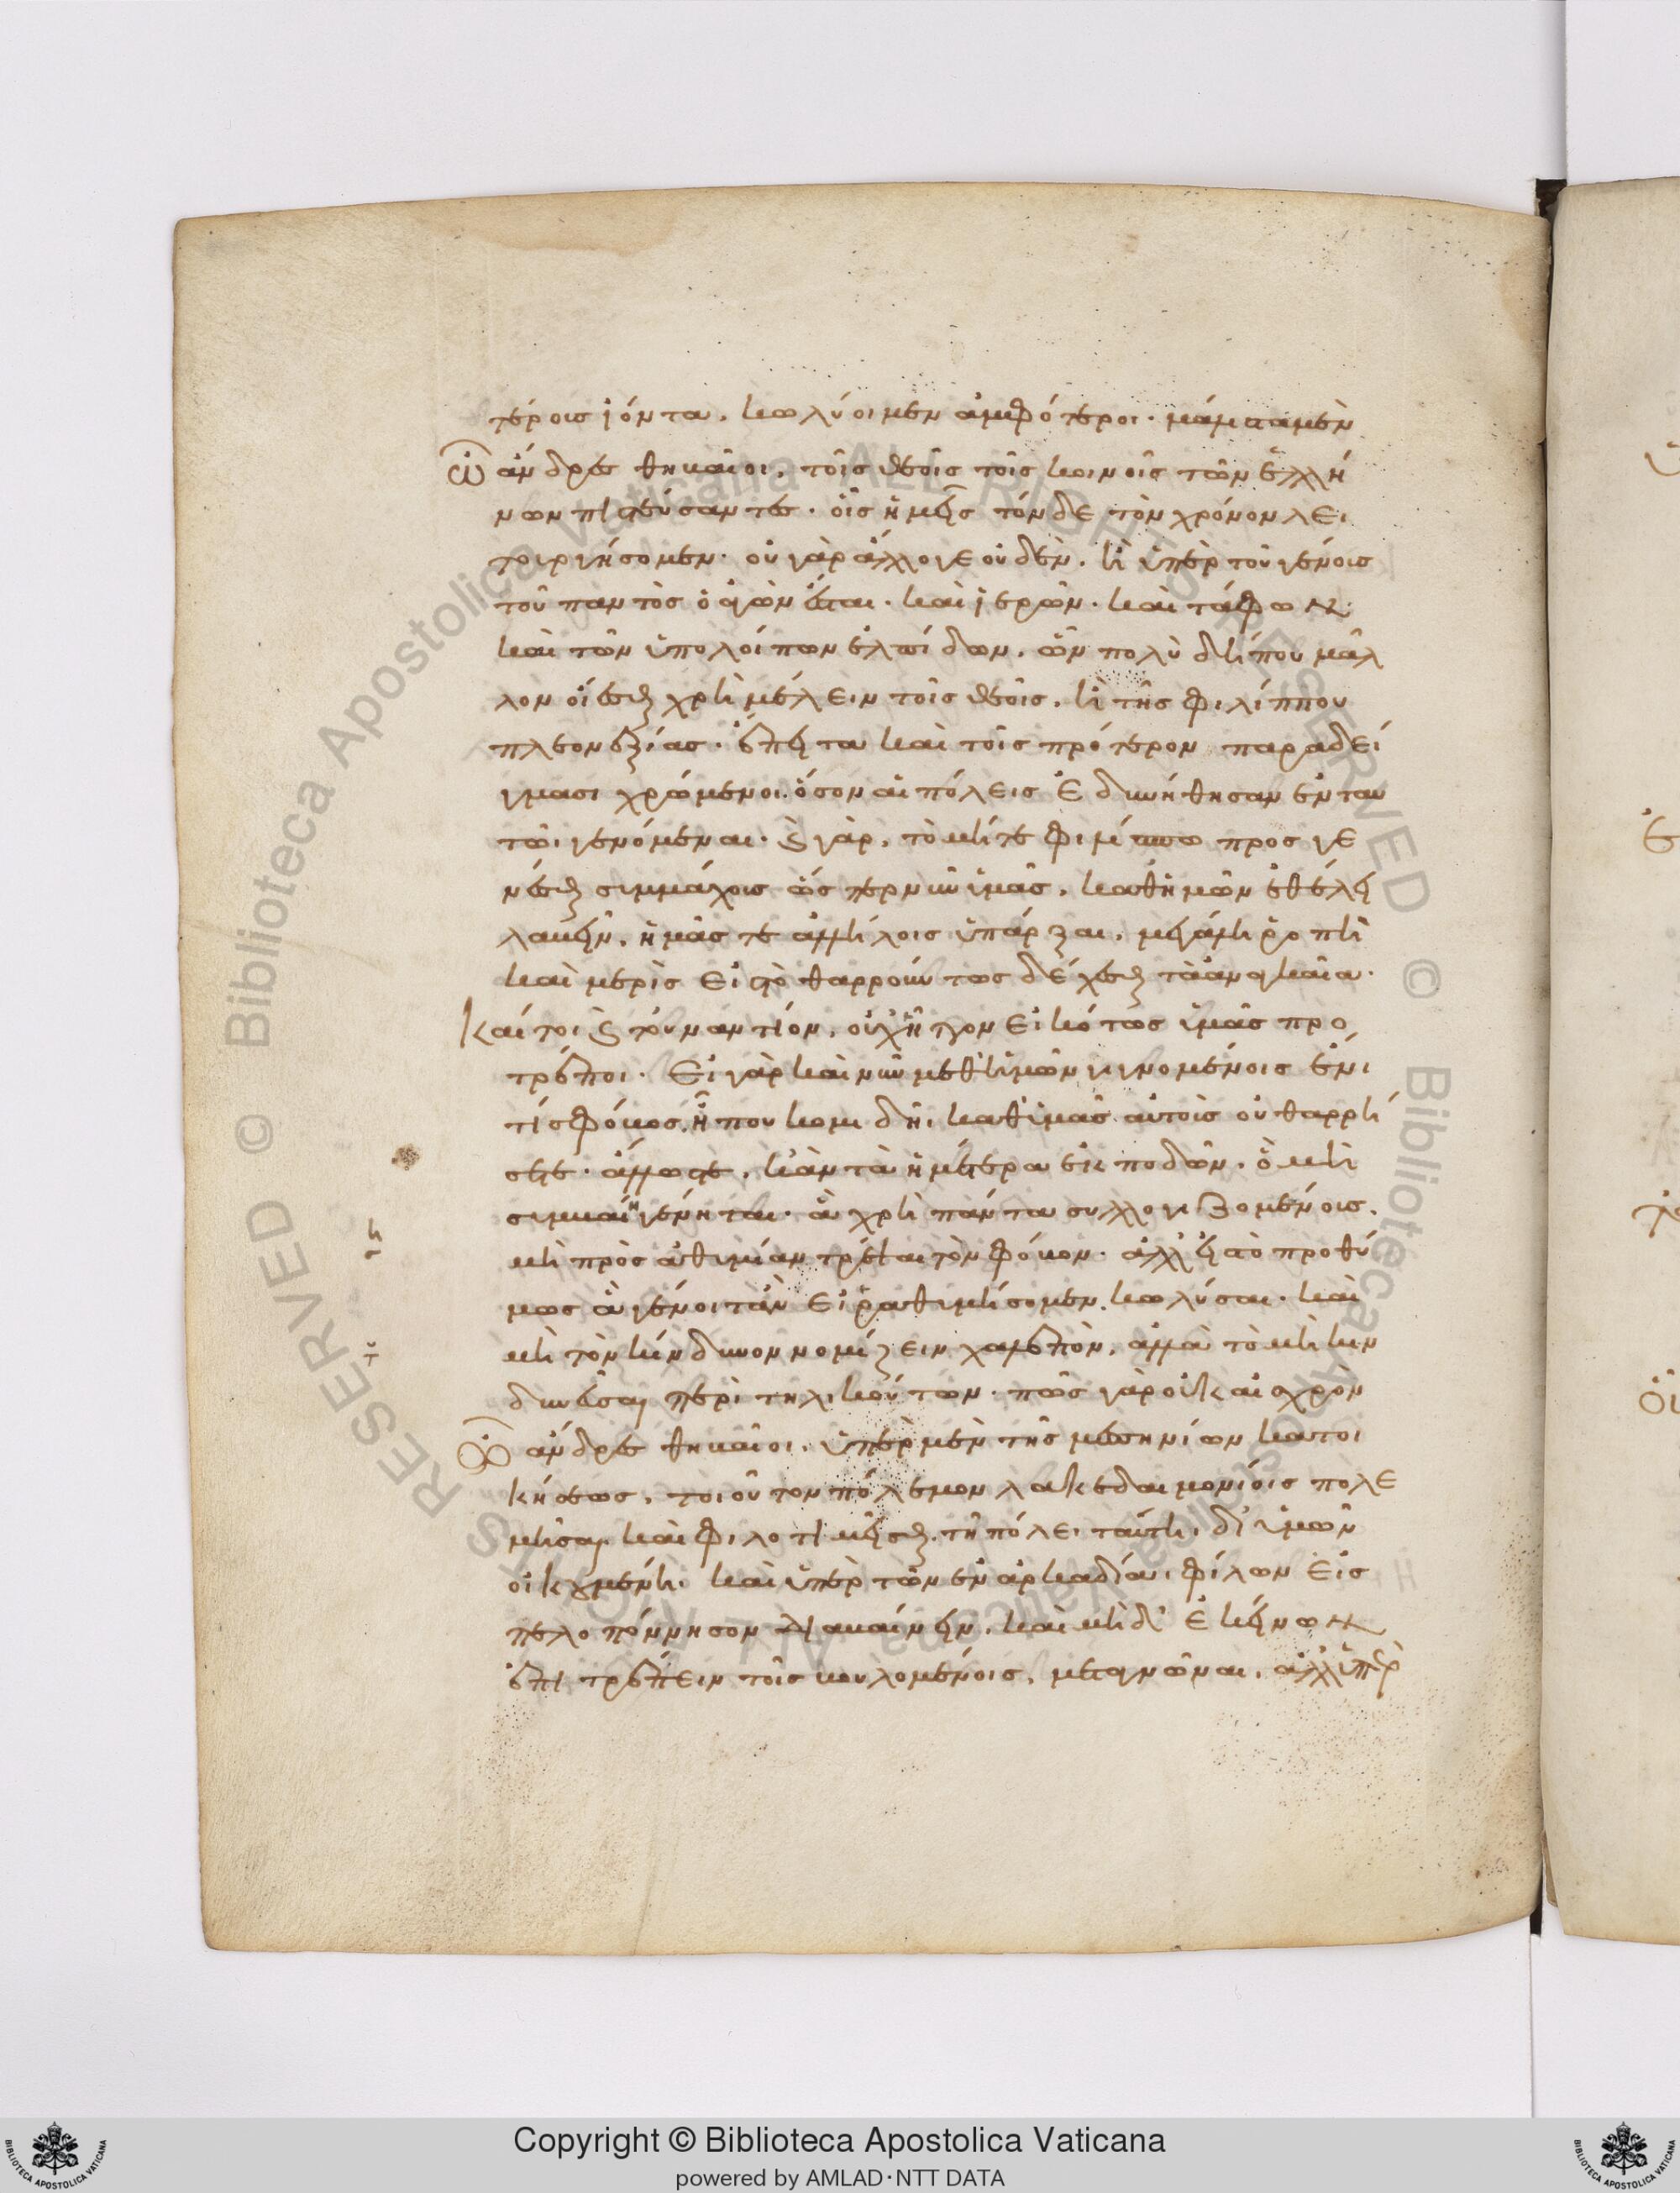 τέροις ἰόντα, κωλύοιμεν ἀμφότεροι· μάλιστα μὲν
ὦ ἄνδρες θηβαῖοι, τοῖς θεοῖς τοῖς κοινοῖς τῶν ἑλλή
νων πιστεύσαντες· οἷς ἡμεῖς τόνδε τὸν χρόνον λει
τουργήσομεν· οὐ γὰρ ἄλλό γε οὐδὲν, ἢ ὑπὲρ τοῦ γένους
τοῦ παντὸς ὁ ἀγὼν ἔσται· καὶ ἱερῶν· καὶ τάφων
καὶ τῶν ὑπολοίπων ἐλπίδων, ὧν πολὺ δήπου μᾶλ
λον οἴεσθαι χρὴ μέλειν τοῖς θεοῖς, ἢ τῆς φιλίππου
πλεονεξίας· ἔπειτα καὶ τοῖς πρότερον παραδεί
γμασι χρώμενοι. ὅσον αἱ πόλεις ἐδυνήθησαν ἐν ταυ
τῶι γενόμεναι· καὶ γὰρ, τὸ μήτε φιλίππω προσγε
νέσθαι συμμάχους ὥσπερ νῦν ὑμᾶς, καθ ἡμῶν ἐθέλει
λαβεῖν, ἡμᾶς τε ἀλλήλοις ὑπάρξαι, μεγάλη ῥοπὴ
καὶ μερὶς εἰς τὸ θαρρούντως δέχεσθαι τὰ ἀναγκαῖα·
Καίτοι καὶ τοὐναντίον, οὐχ ἧττον εἰκότως ὑμᾶς προ
τρέποι· Εἰ γὰρ καὶ νῦν μεθ ἡμῶν γιγνομένοις ἔνι
τίς φόβος, ἦπου κομιδῆι καθ ὑμᾶς αὐτοὺς οὐ θαρρή
σετε· ἄλλως τε, κἂν τὰ ἡμέτερα ἐκποδῶν, ὃ μὴ
συμβαίη γένηται· ἃ χρὴ πάντα συλλογιζομένους,
μὴ πρὸς ἀθυμίαν τρέψαι τὸν φόβον· ἀλλ' εἰς τὸ προθύ
μως ἃ γένοιτ' ἂν εἰ ῥαθυμήσομεν, κωλύσαι· καὶ
μὴ τὸν κίνδυνον νομίζειν χαλεπὸν, ἀλλὰ τὸ μὴ κιν
δυνεῦσαι περὶ τηλικούτων· πῶς γὰρ οὐκ αἰσχρὸν
ὦ ἄνδρες θηβαῖοι, ὑπὲρ μὲν τῆς μεσηνίων κατοι
κήσεως, τοιοῦτον πόλεμον λακεδαιμονίοις πολε
μῆσαι καὶ φιλοτιμεῖσθαι τῆ πόλει ταύτη, δι' ὑμῶν
οἰκουμένη. καὶ ὑπὲρ τῶν ἐν ἀρκαδίαι φίλων εἰς
πελοπόννησον διαβαίνειν, καὶ μηδ' ἐκείνων
ἐπιτρέπειν τοῖς βουλομένοις, μεταγνῶναι, ἀλλ' ὑπὲρ
Copyright © Biblioteca Apostolica Vaticana
powered by AMLAD·NTT DATA